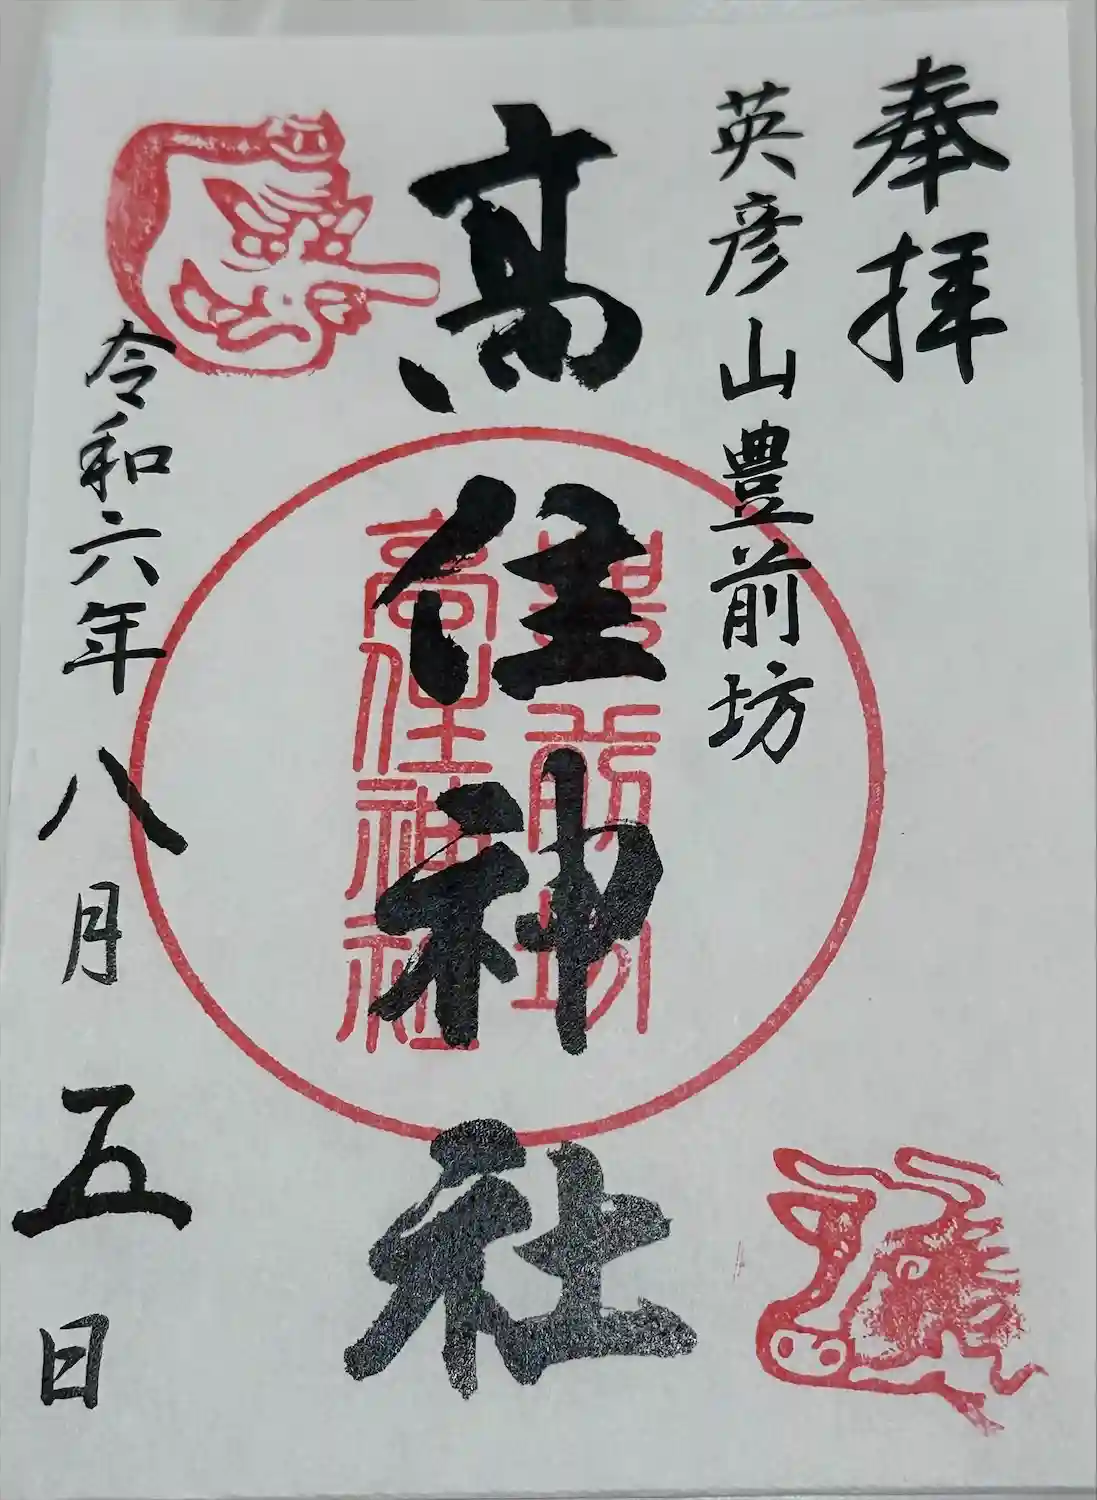 奉拝
英彦山豊前坊
高住神社
豊前坊
高住神社
令和六年八月五日